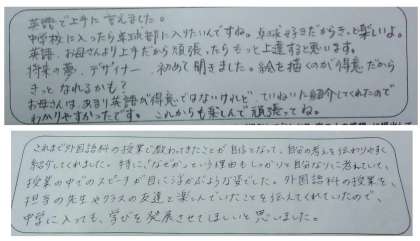 英語で上手に言えました。
中学校に入ったら卓球部に入りたいんですね。卓球好きだからきっと楽しいよ。
英語、お母さんより上手だから頑張ったらもっと上達すると思います。
将来の夢、デザイナー、初めて聞きました。絵を描くのが得意だから
きっとなれるかも？
お母さんは、あまり英語が得意ではないけれど、ていねいに紹介してくれたので
わかりやすかったです。これからも楽しんで頑張ってね。
これまで外国語科の授業で教わってきたことが自信となって、自分の考えを伝わりやすく
紹介してくれました。特になぜかという理由もしっかりと自分なりに考えていて、
授業の中でのスピーチが目に浮かぶような姿でした。外国語科の授業を、
担当の先生やクラスの友達と楽しんでいたことを伝えてくれていたので、
中学に入っても、学びを発展させてほしいと思いました。